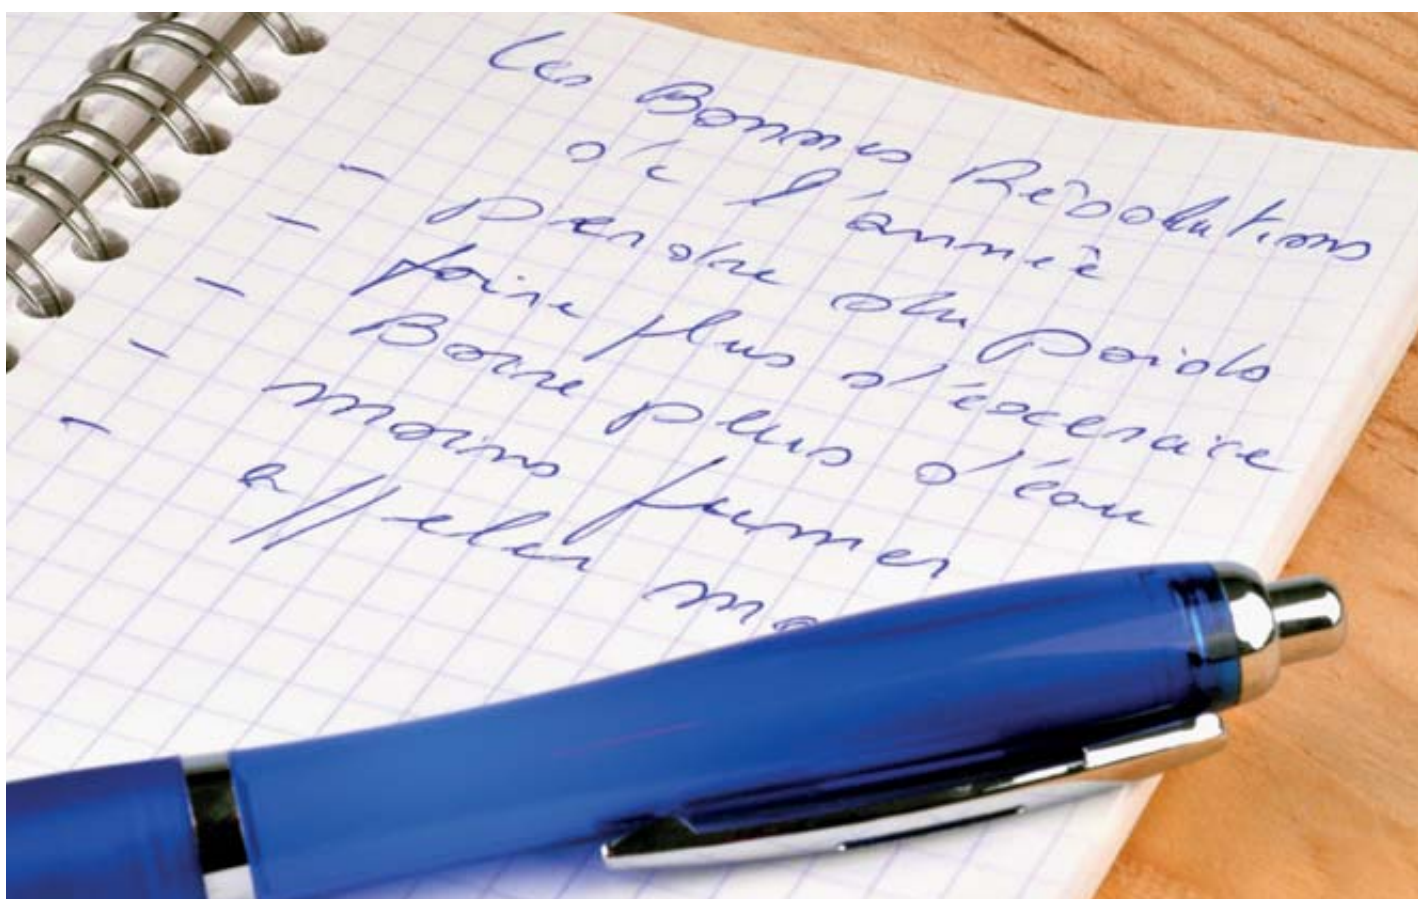 Les Bonnes Résolutions
de l'année
- Prendre du poids
- faire plus d'éxercice
- Boire plus d'eau
- moins fumer
- appeler